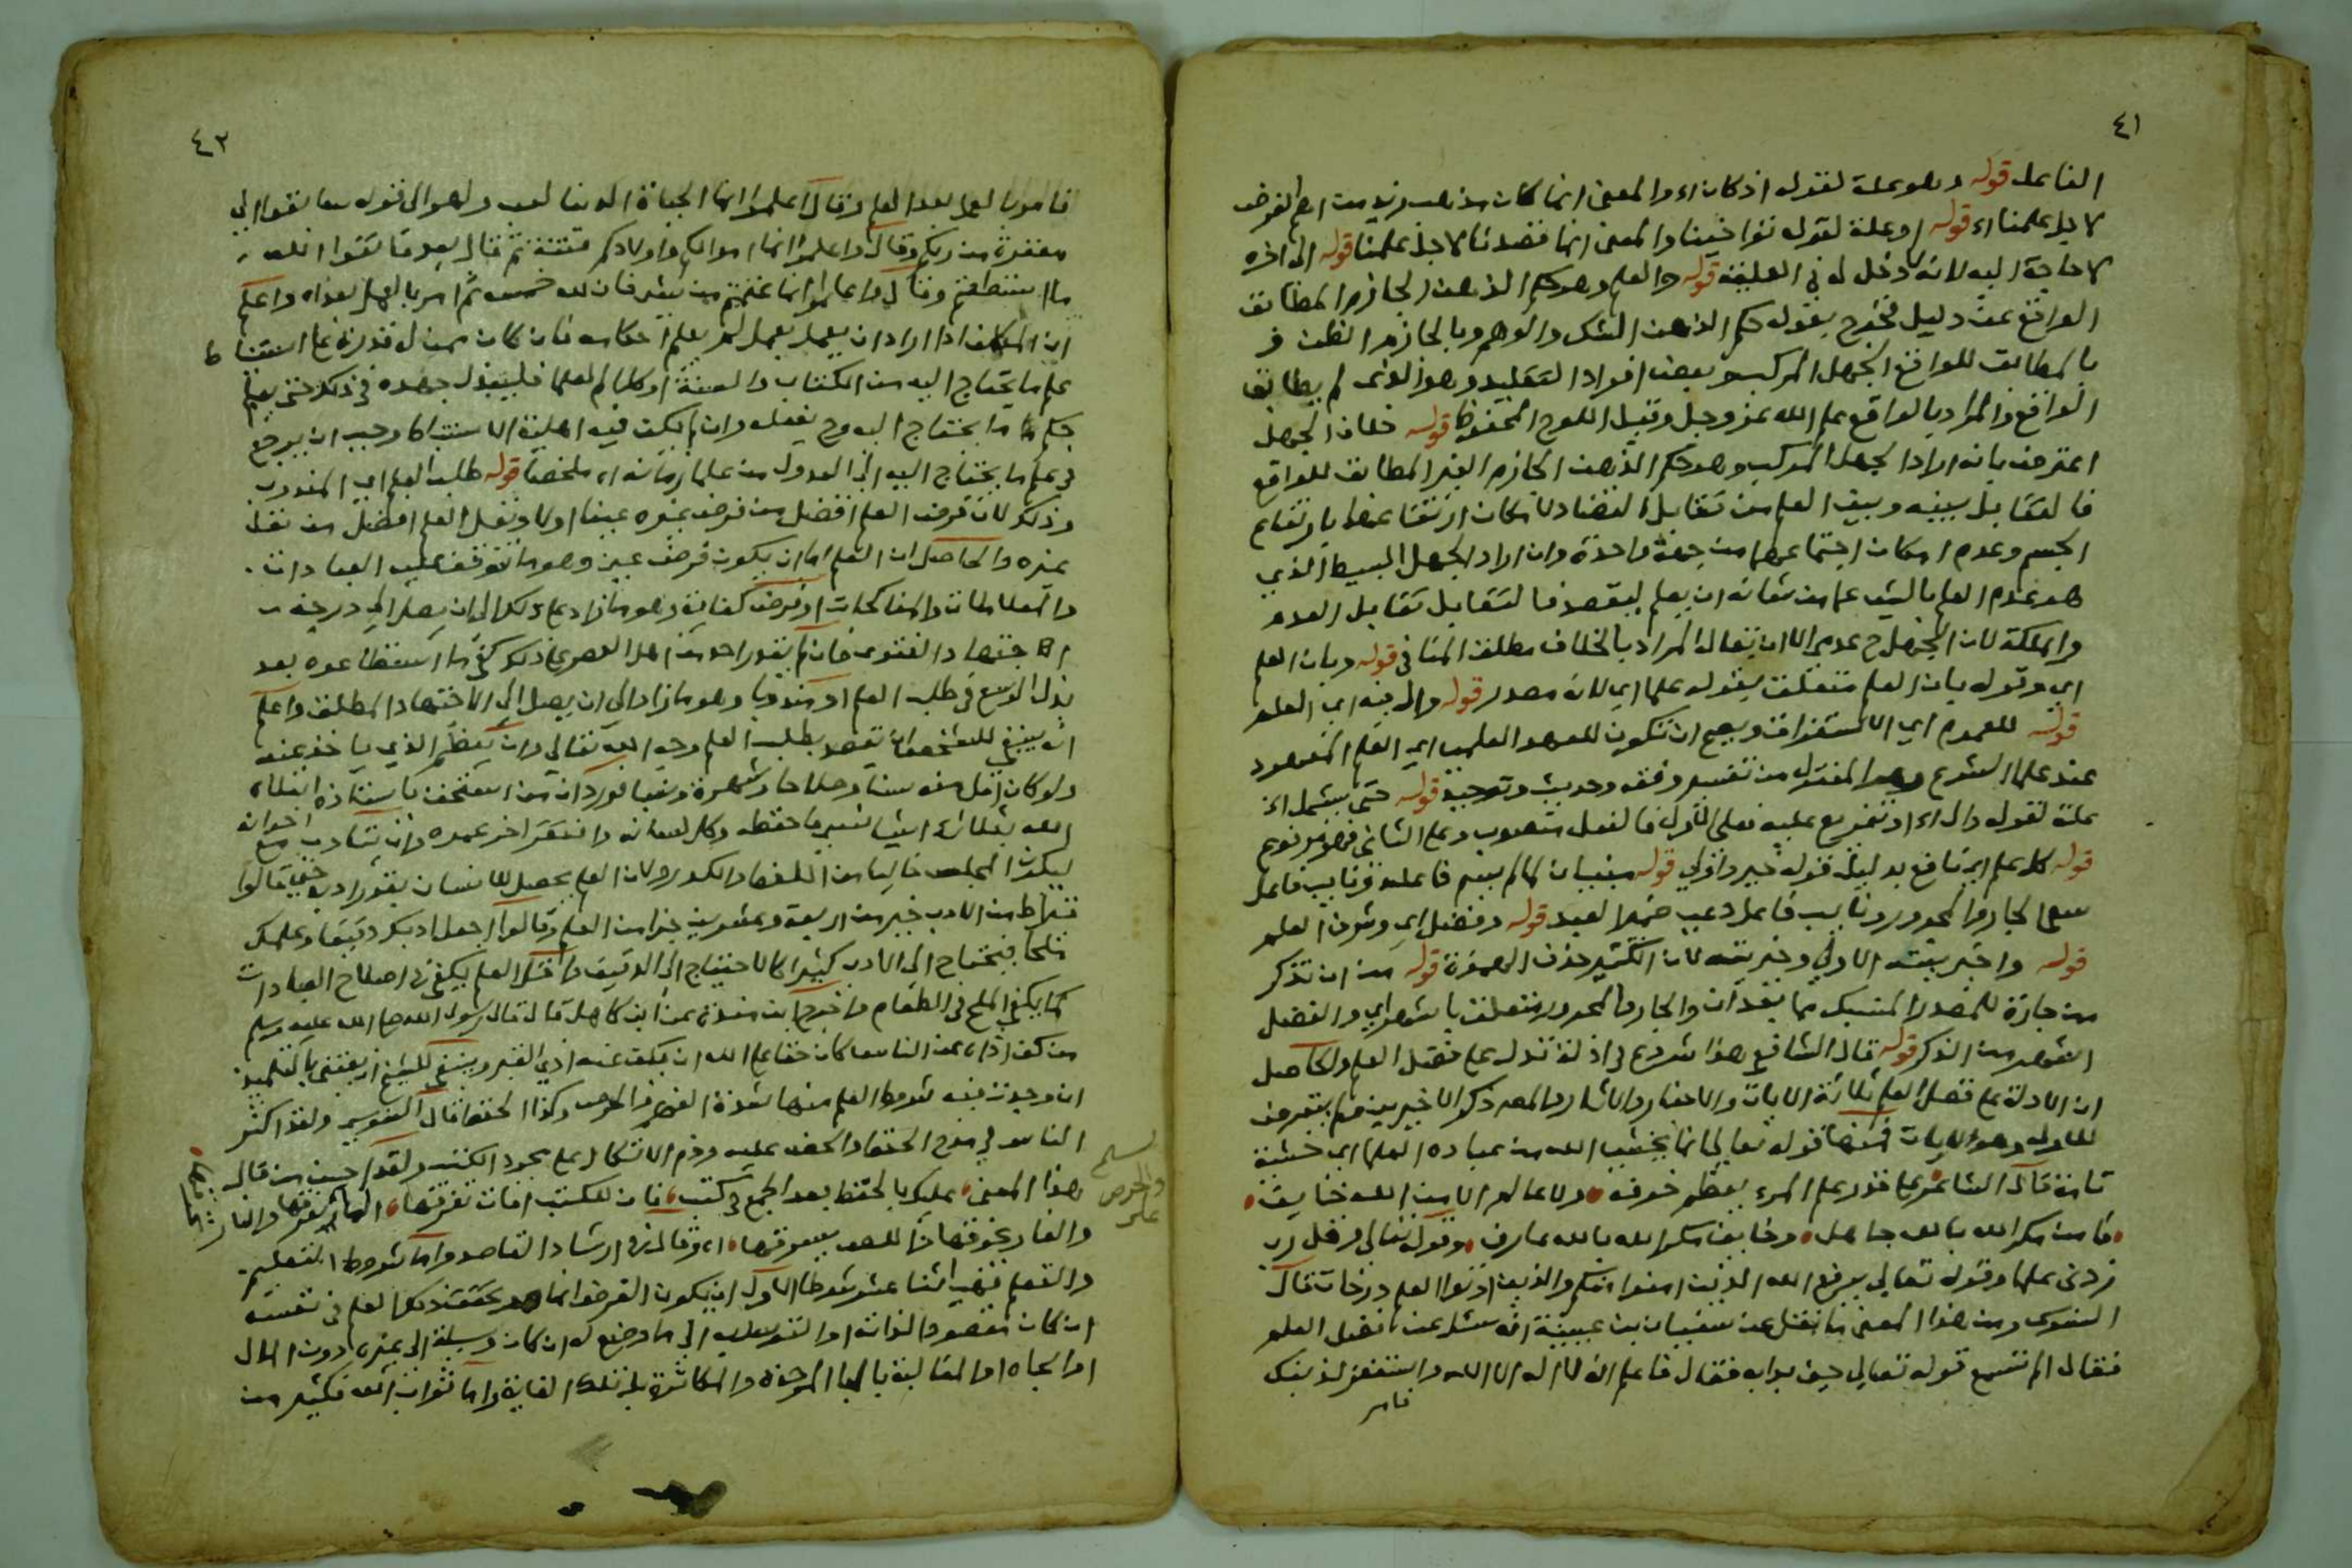 ٤١
الفاعل قوله وهو علة لقوله اذ كان اه والمعنى انما كان مذهب زيد من اهم الغرض
لاجل علمنا اه قوله او علة لقوله نواخينا والمعنى انما قصدنا لاجل علمنا قوله الى اخره
لا حاجة اليه لانه لا دخل له في العلية قوله والعلم وهو حكم الذهن الجازم المطابق
الواقع عن دليل فخرج بقوله حكم الذهن الشك والوهم وبالجازم الظن و
بالمطابق للواقع الجهل المركب وبعض افراد التقليد وهو الذي لم يطابق
الواقع والمراد بالواقع علم الله عز وجل وقيل اللوح المحفوظ قوله خلاف الجهل
اعترض بانه ان اراد الجهل المركب وهو حكم الذهن الجازم الغير المطابق للواقع
فالتقابل بينه وبين العلم من تقابل التضاد لامكان ارتفاعهما بارتفاع
الجسم وعدم امكان اجتماعهما من جهة واحدة وان اراد الجهل البسيط الذي
هو عدم العلم بالشي عما من شانه ان يعلم ليقصد فالتقابل تقابل العدم
والملكة لان الجهل ح عدمي الا ان يقال المراد بالخلاف مطلق المنافي قوله وبان العلم
اي وقوله بان العلم متعلق بقوله علما اي لانه مصدر قوله وال فيه اي العلم
قوله للعموم اي الاستغراق ويصح ان تكون للعهد العلمي اي العلم المعهود
عند علماء الشرع وهو المنقول من تفسير وفقه وحديث وتوحيد قوله حتى يشمل اه
علة لقوله وال اه او تفريع عليه فعلى الاول فالفعل منصوب وعلى الثاني فهو مرفوع
قوله كل علم اي نافع بدليل قوله خير واولى قوله مبنيان لما لم يسم فاعله ونايب فاعل
سعى الجار والمجرور ونايب فاعل دعي ضمير العبد قوله وفضل اي وشرف العلم
قوله واخيريته الاولى وخيريته لان الكثير حذف الهمزة قوله من ان تذكر
من جارة للمصدر المنسبك مما بعد ان والجار والمجرور متعلق باشهر اي والفضل
اشهر من الذكر قوله قال الشافعي هذا شروع في ادلة تدل على فضل العلم والحاصل
ان الادلة على فضل العلم ثلاثة الايات والاخبار والاثار والمص ذكر الاخيرين ولم يتعرض
للاول وهو الايات فمنها قوله تعالى انما يخشى الله من عباده العلماء اي خشية
تامة قال الشاعر على قدر علم المرء يعظم خوفه ولا عالم الا من الله خايف
فامن مكر الله بالله جاهل وخايف مكر الله بالله عارف وقوله تعالى وقل رب
زدني علما وقوله تعالى يرفع الله الذين امنوا منكم والذين اوتوا العلم درجات قال
النووي ومن هذا المعنى ما نقل عن سفيان بن عيينة انه سئل عن فضل العلم
فقال الم تسمع قوله تعالى حين بدا به فقال فاعلم انه لا اله الا الله واستغفر لذنبك
فامر
٤٢
فامر بالعمل بعد العلم وقال اعلموا انما الحياة الدنيا لعب ولهو الى قوله سابقوا الى
مغفرة من ربكم وقال واعلموا انما اموالكم واولادكم فتنة ثم قال بعد فاتقوا الله
ما استطعتم وقال واعلموا انما غنمتم من شي فان لله خمسه ثم امر بالعمل بعد اه واعلم
ان المكلف اذا اراد ان يعمل بعمل لم يعلم احكامه فان كان ممن له قدرة على استنباط
علم ما يحتاج اليه من الكتاب والسنة او كلام العلماء فليبذل جهده في ذلك حتى يعلم
حكم ما يحتاج اليه وح يفعله وان لم يكن فيه اهلية الاستنباط وجب ان يرجع
في علم ما يحتاج اليه الى العدول من علماء زمانه اه ملخصا قوله طلب العلم اي المندوب
وذلك لان فرض العلم افضل من فرض غيره عينا اولا ونفل العلم افضل من نفل
غيره والحاصل ان العلم اما ان يكون فرض عين وهو ما تتوقف عليه العبادات
والمعاملات والمناكحات او فرض كفاية وهو ما زاد على ذلك الى ان يصل الى درجة
الاجتهاد والفتوى فان لم يقدر احد من اهل العصر على ذلك كفى ما استطاعوه بعد
بذل الوسع في طلب العلم او مندوبا وهو ما زاد الى ان يصل الى الاجتهاد المطلق واعلم
انه ينبغي للشخص ان يقصد بطلب العلم وجه الله تعالى وان يعظم الذي ياخذ عنه
ولو كان اقل منه سنا وصلاحا وشهرة ونسبا فورد ان من استخف باستاذه ابتلاه
الله بثلاثة اشيا نسي ما حفظه وكل لسانه وافتقر اخر عمره وان يتادب مع اخوانه
ليكون المجلس خاليا من اللغط والكدر ولان العلم يحصل للانسان بقدر ادبه حتى قالوا
قيراط من الادب خير من اربعة وعشرين جزا من العلم وقالوا اجعل ادبك دقيقا وعلمك
ملحا فيحتاج الى الادب كثيرا كالاحتياج الى الدقيق واقل العلم يكفي في اصلاح العبادات
كما يكفي الملح في الطعام واخرج ابن منده عن ابن كاهل قال قال رسول الله صلى الله عليه وسلم
من كف اذاه عن الناس كان حقا على الله ان يكف عنه اذى القبر وينبغي للشيخ ان يعتني بالتلميذ
ان وجدت فيه شروط العلم منها شدة الفهم والحرص وكذا الحفظ قال السنوسي ولقد اكثر
الناس في مدح الحفظ والحض عليه وذم الاتكال على مجرد الكتب ولقد احسن من قال
هذا المعنى عليك بالحفظ بعد الجمع في كتب فان للكتب افات تفرقها الماء يغرقها والنار تحرقها
والفار يخرقها واللص يسرقها اه وقال في ارشاد القاصد واما شروط التعليم
والتعلم فهي اثنا عشر شرطا الاول ان يكون الغرض انما هو تحقيق ذلك العلم في نفسه
ان كان مقصودا لذاته او التوسل به الى ما وضع له ان كان وسيلة الى غيره دون المال
او الجاه او المغالبة والمكاثرة بل تلك الغاية واما ثواب الله فكثير من